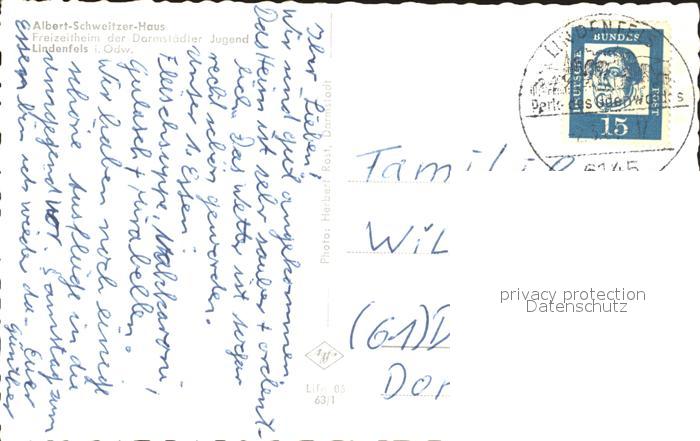 Albert-Schweitzer-Haus
Freizeitheim der Darmstädter Jugend
Lindenfels i. Odw.
Ihr Lieben!
Wir sind gut angekommen.
Das Heim ist sehr sauber + ordent-
lich. Das Wetter ist sogar
recht schön geworden.
Unser 1. Essen:
Fleischsuppe, Makkaroni,
Gulasch + Mirabellen.
Wir haben noch einige
schöne Ausflüge in die
Umgegend vor. Samstag zum
Essen bin ich wieder da. Euer
Günther
Photo: Herbert Rost, Darmstadt
Life 63/1
LINDENFELS
Perle des Odenwaldes
6145
DEUTSCHE BUNDESPOST
15
Familie
Wil
(61) D
Dor
privacy protection
Datenschutz